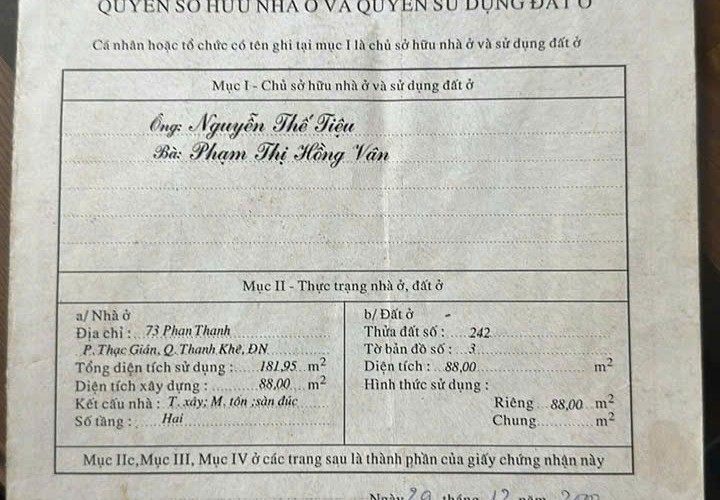 QUYỀN SỞ HỮU NHÀ Ở VÀ QUYỀN SỬ DỤNG ĐẤT Ở
Cá nhân hoặc tổ chức có tên ghi tại mục I là chủ sở hữu nhà ở và sử dụng đất ở
Mục I - Chủ sở hữu nhà ở và sử dụng đất ở
Ông: Nguyễn Thế Tiệu
Bà: Phạm Thị Hồng Vân
Mục II - Thực trạng nhà ở, đất ở
a/ Nhà ở
Địa chỉ : 73 Phan Thanh
P. Thạc Gián, Q. Thanh Khê, ĐN
Tổng diện tích sử dụng : 181,95 m²
Diện tích xây dựng : 88,00 m²
Kết cấu nhà : T. xây; M. tôn ;sàn đúc
Số tầng : Hai
b/ Đất ở -
Thửa đất số : 242
Tờ bản đồ số : 3
Diện tích : 88,00 m²
Hình thức sử dụng :
Riêng 88,00 m²
Chung m²
Mục IIc,Mục III, Mục IV ở các trang sau là thành phần của giấy chứng nhận này
Ngày 29 tháng 12 năm